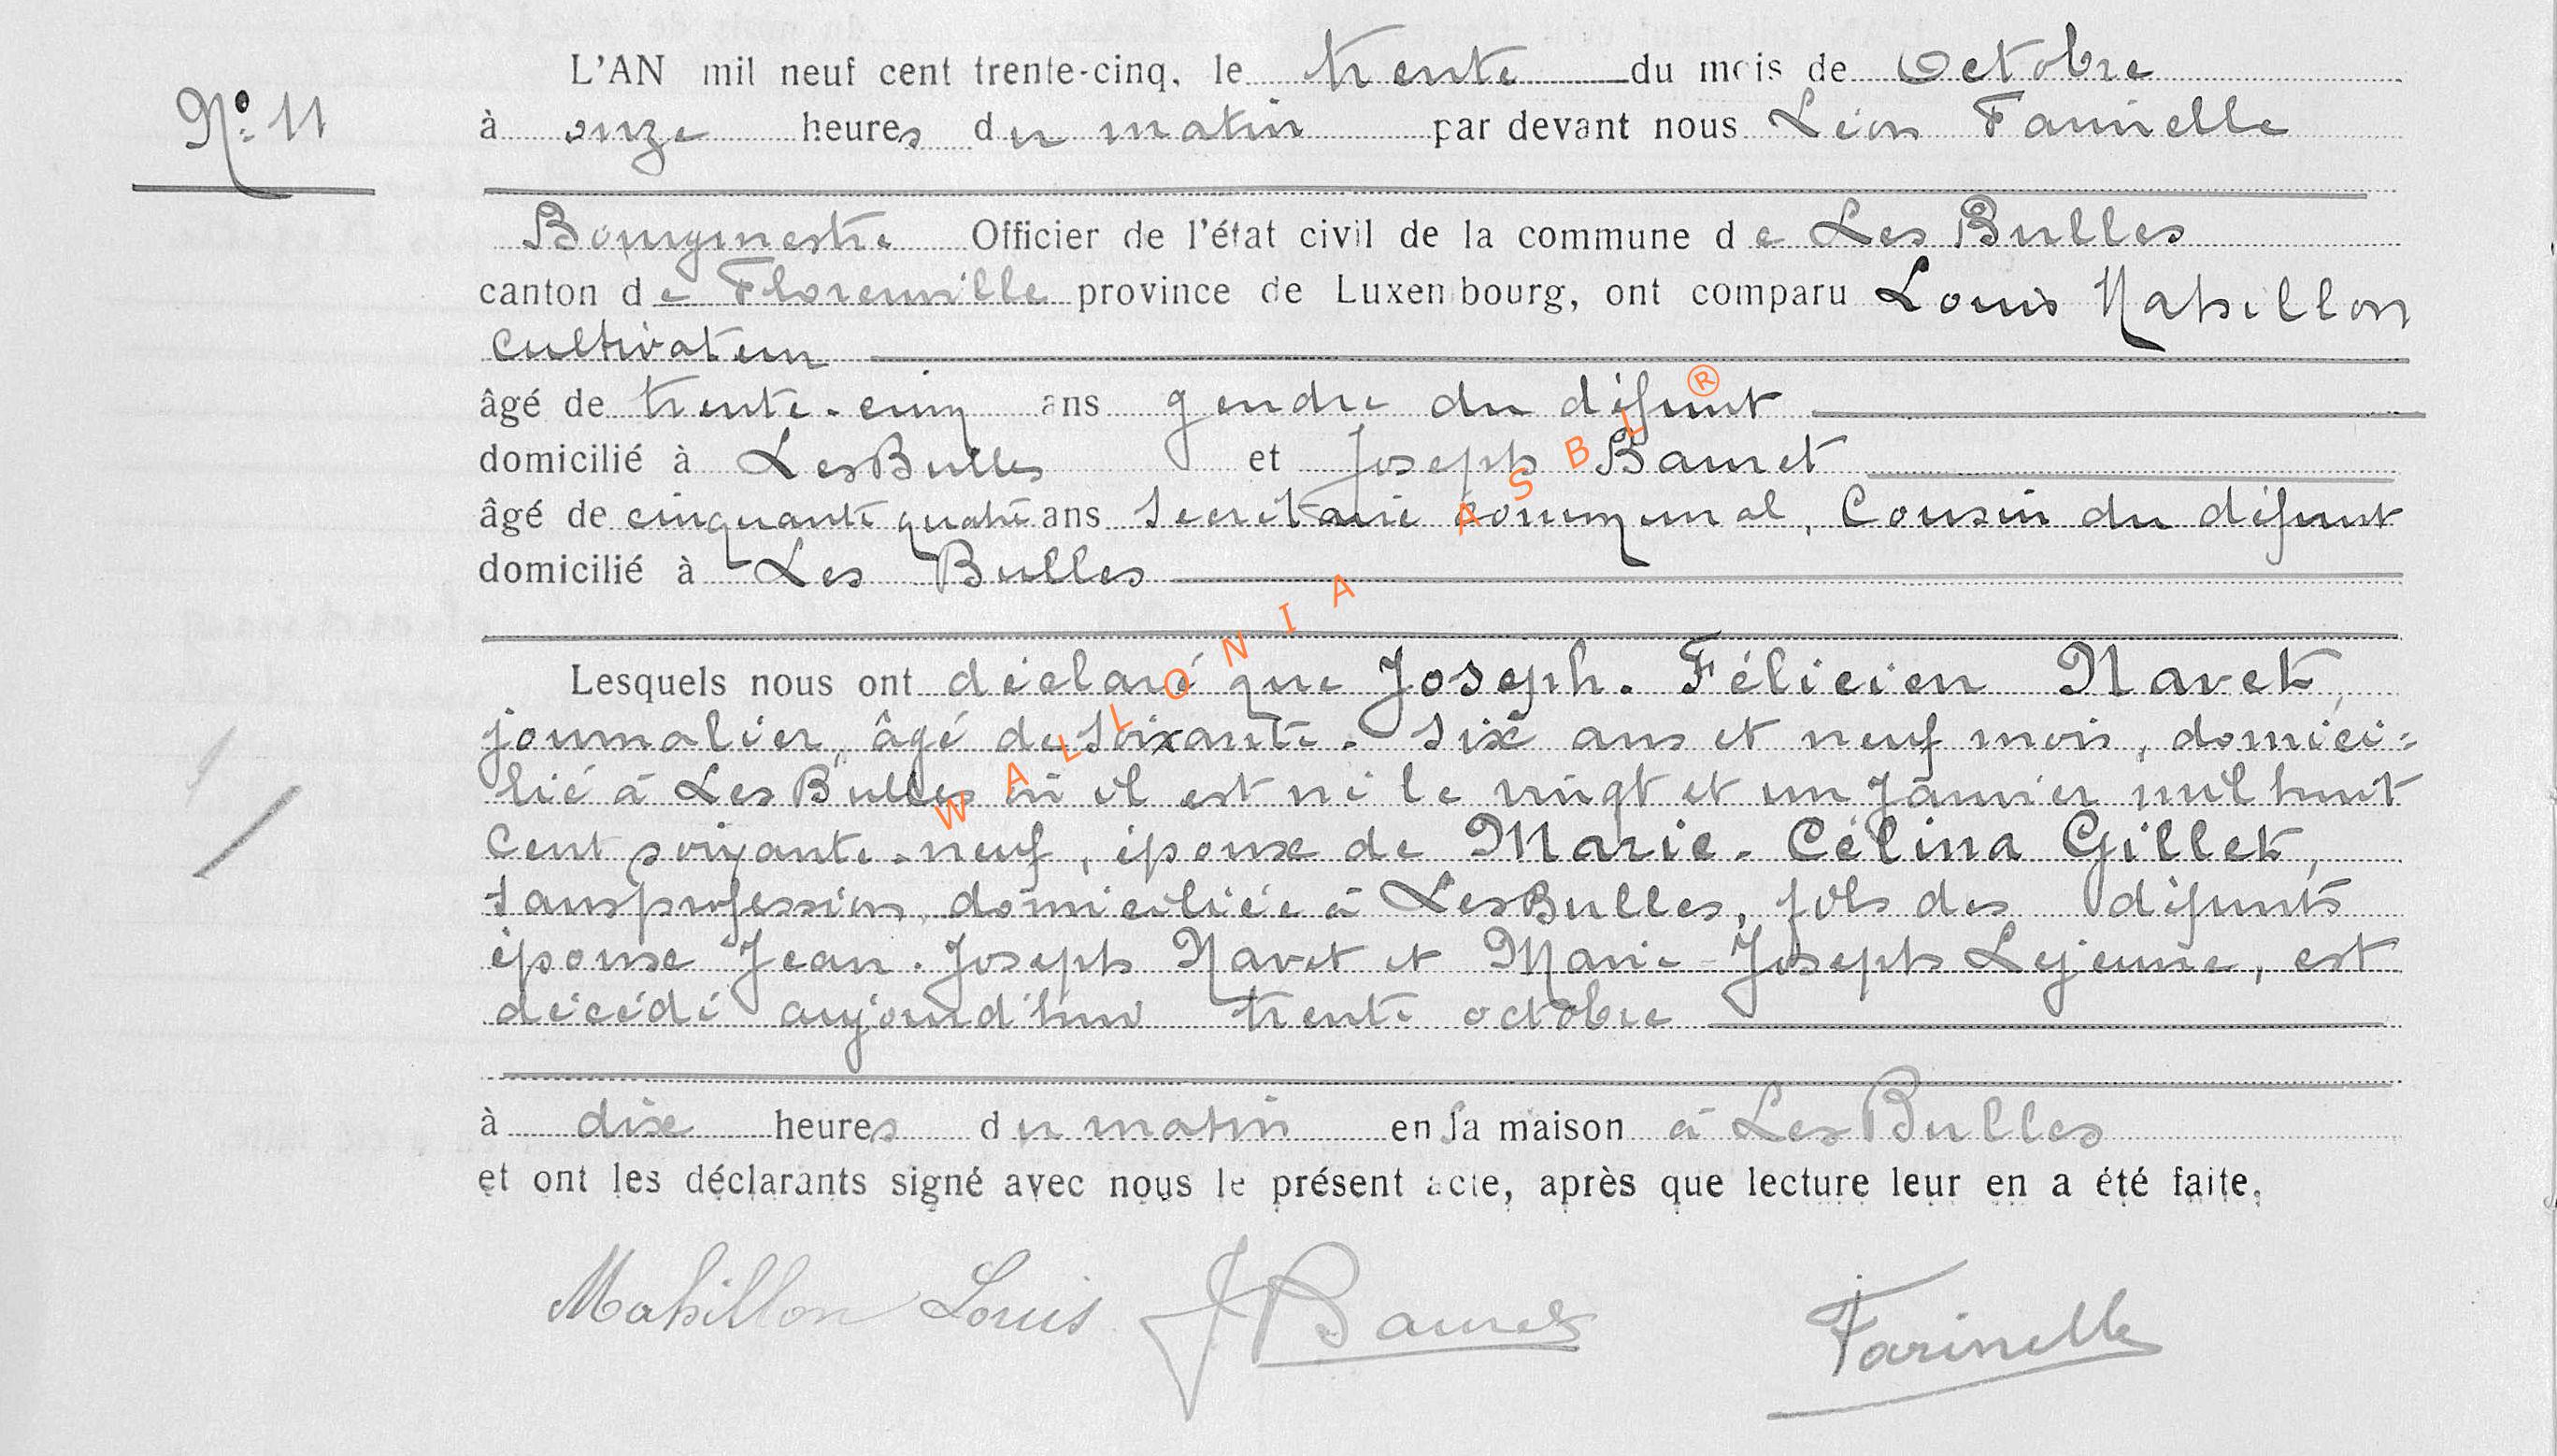 L'AN mil neuf cent trente-cinq, le trente du mois de Octobre
N° 11
à onze heures du matin par devant nous Léon Farinelle
Bourgmestre Officier de l'état civil de la commune de Les Bulles
canton de Florenville province de Luxembourg, ont comparu Louis Mahillon
Cultivateur
âgé de trente-cinq ans gendre du défunt
domicilié à Les Bulles et Joseph Baur et
âgé de cinquante quatre ans secrétaire communal, Cousin du défunt
domicilié à Les Bulles
Lesquels nous ont déclaré que Joseph-Félicien Navet,
journalier, âgé de soixante-six ans et neuf mois, domici-
lié à Les Bulles où il est né le vingt et un Janvier mil huit
Cent soixante-neuf, époux de Marie-Célina Gillet,
sans profession, domiciliée à Les Bulles, fils des défunts
époux Jean-Joseph Navet et Marie-Joseph Lejeune, est
décédé aujourd'hui trente octobre
à dix heures du matin en sa maison à Les Bulles
et ont les déclarants signé avec nous le présent acte, après que lecture leur en a été faite.
Mahillon Louis J Bauret Farinelle
WALLONIA ASBL ®